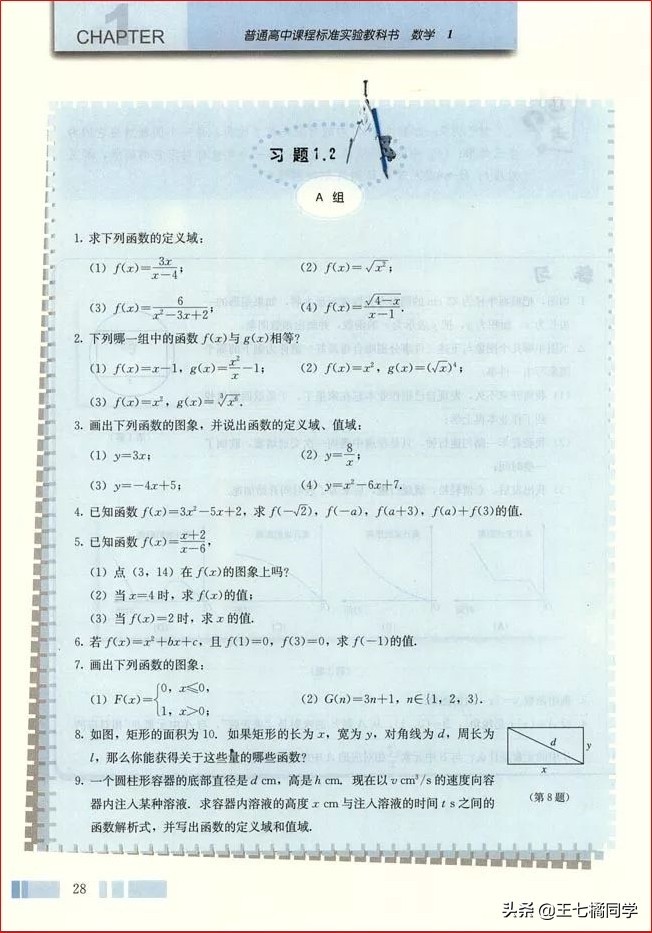 1
CHAPTER
普通高中课程标准实验教科书 数学 1
习 题 1.2
A 组
1. 求下列函数的定义域:
(1) f(x)=3x/(x−4); (2) f(x)=√x²;
(3) f(x)=6/(x²−3x+2); (4) f(x)=√(4−x)/(x−1).
2. 下列哪一组中的函数 f(x)与 g(x)相等?
(1) f(x)=x−1, g(x)=x²/x−1; (2) f(x)=x², g(x)=(√x)⁴;
(3) f(x)=x², g(x)=∛x⁶.
3. 画出下列函数的图象, 并说出函数的定义域、值域:
(1) y=3x; (2) y=8/x;
(3) y=−4x+5; (4) y=x²−6x+7.
4. 已知函数 f(x)=3x²−5x+2, 求 f(−√2), f(−a), f(a+3), f(a)+f(3)的值.
5. 已知函数 f(x)=(x+2)/(x−6),
(1) 点 (3, 14) 在 f(x)的图象上吗?
(2) 当 x=4 时, 求 f(x)的值;
(3) 当 f(x)=2 时, 求 x 的值.
6. 若 f(x)=x²+bx+c, 且 f(1)=0, f(3)=0, 求 f(−1)的值.
7. 画出下列函数的图象:
(1) F(x)={0, x⩽0, 1, x>0; (2) G(n)=3n+1, n∈{1, 2, 3}.
8. 如图, 矩形的面积为 10. 如果矩形的长为 x, 宽为 y, 对角线为 d, 周长为
l, 那么你能获得关于这些量的哪些函数?
d
y
x
(第 8 题)
9. 一个圆柱形容器的底部直径是 d cm, 高是 h cm. 现在以 v cm³/s 的速度向容
器内注入某种溶液. 求容器内溶液的高度 x cm 与注入溶液的时间 t s 之间的
函数解析式, 并写出函数的定义域和值域.
28
头条 @王七橘同学